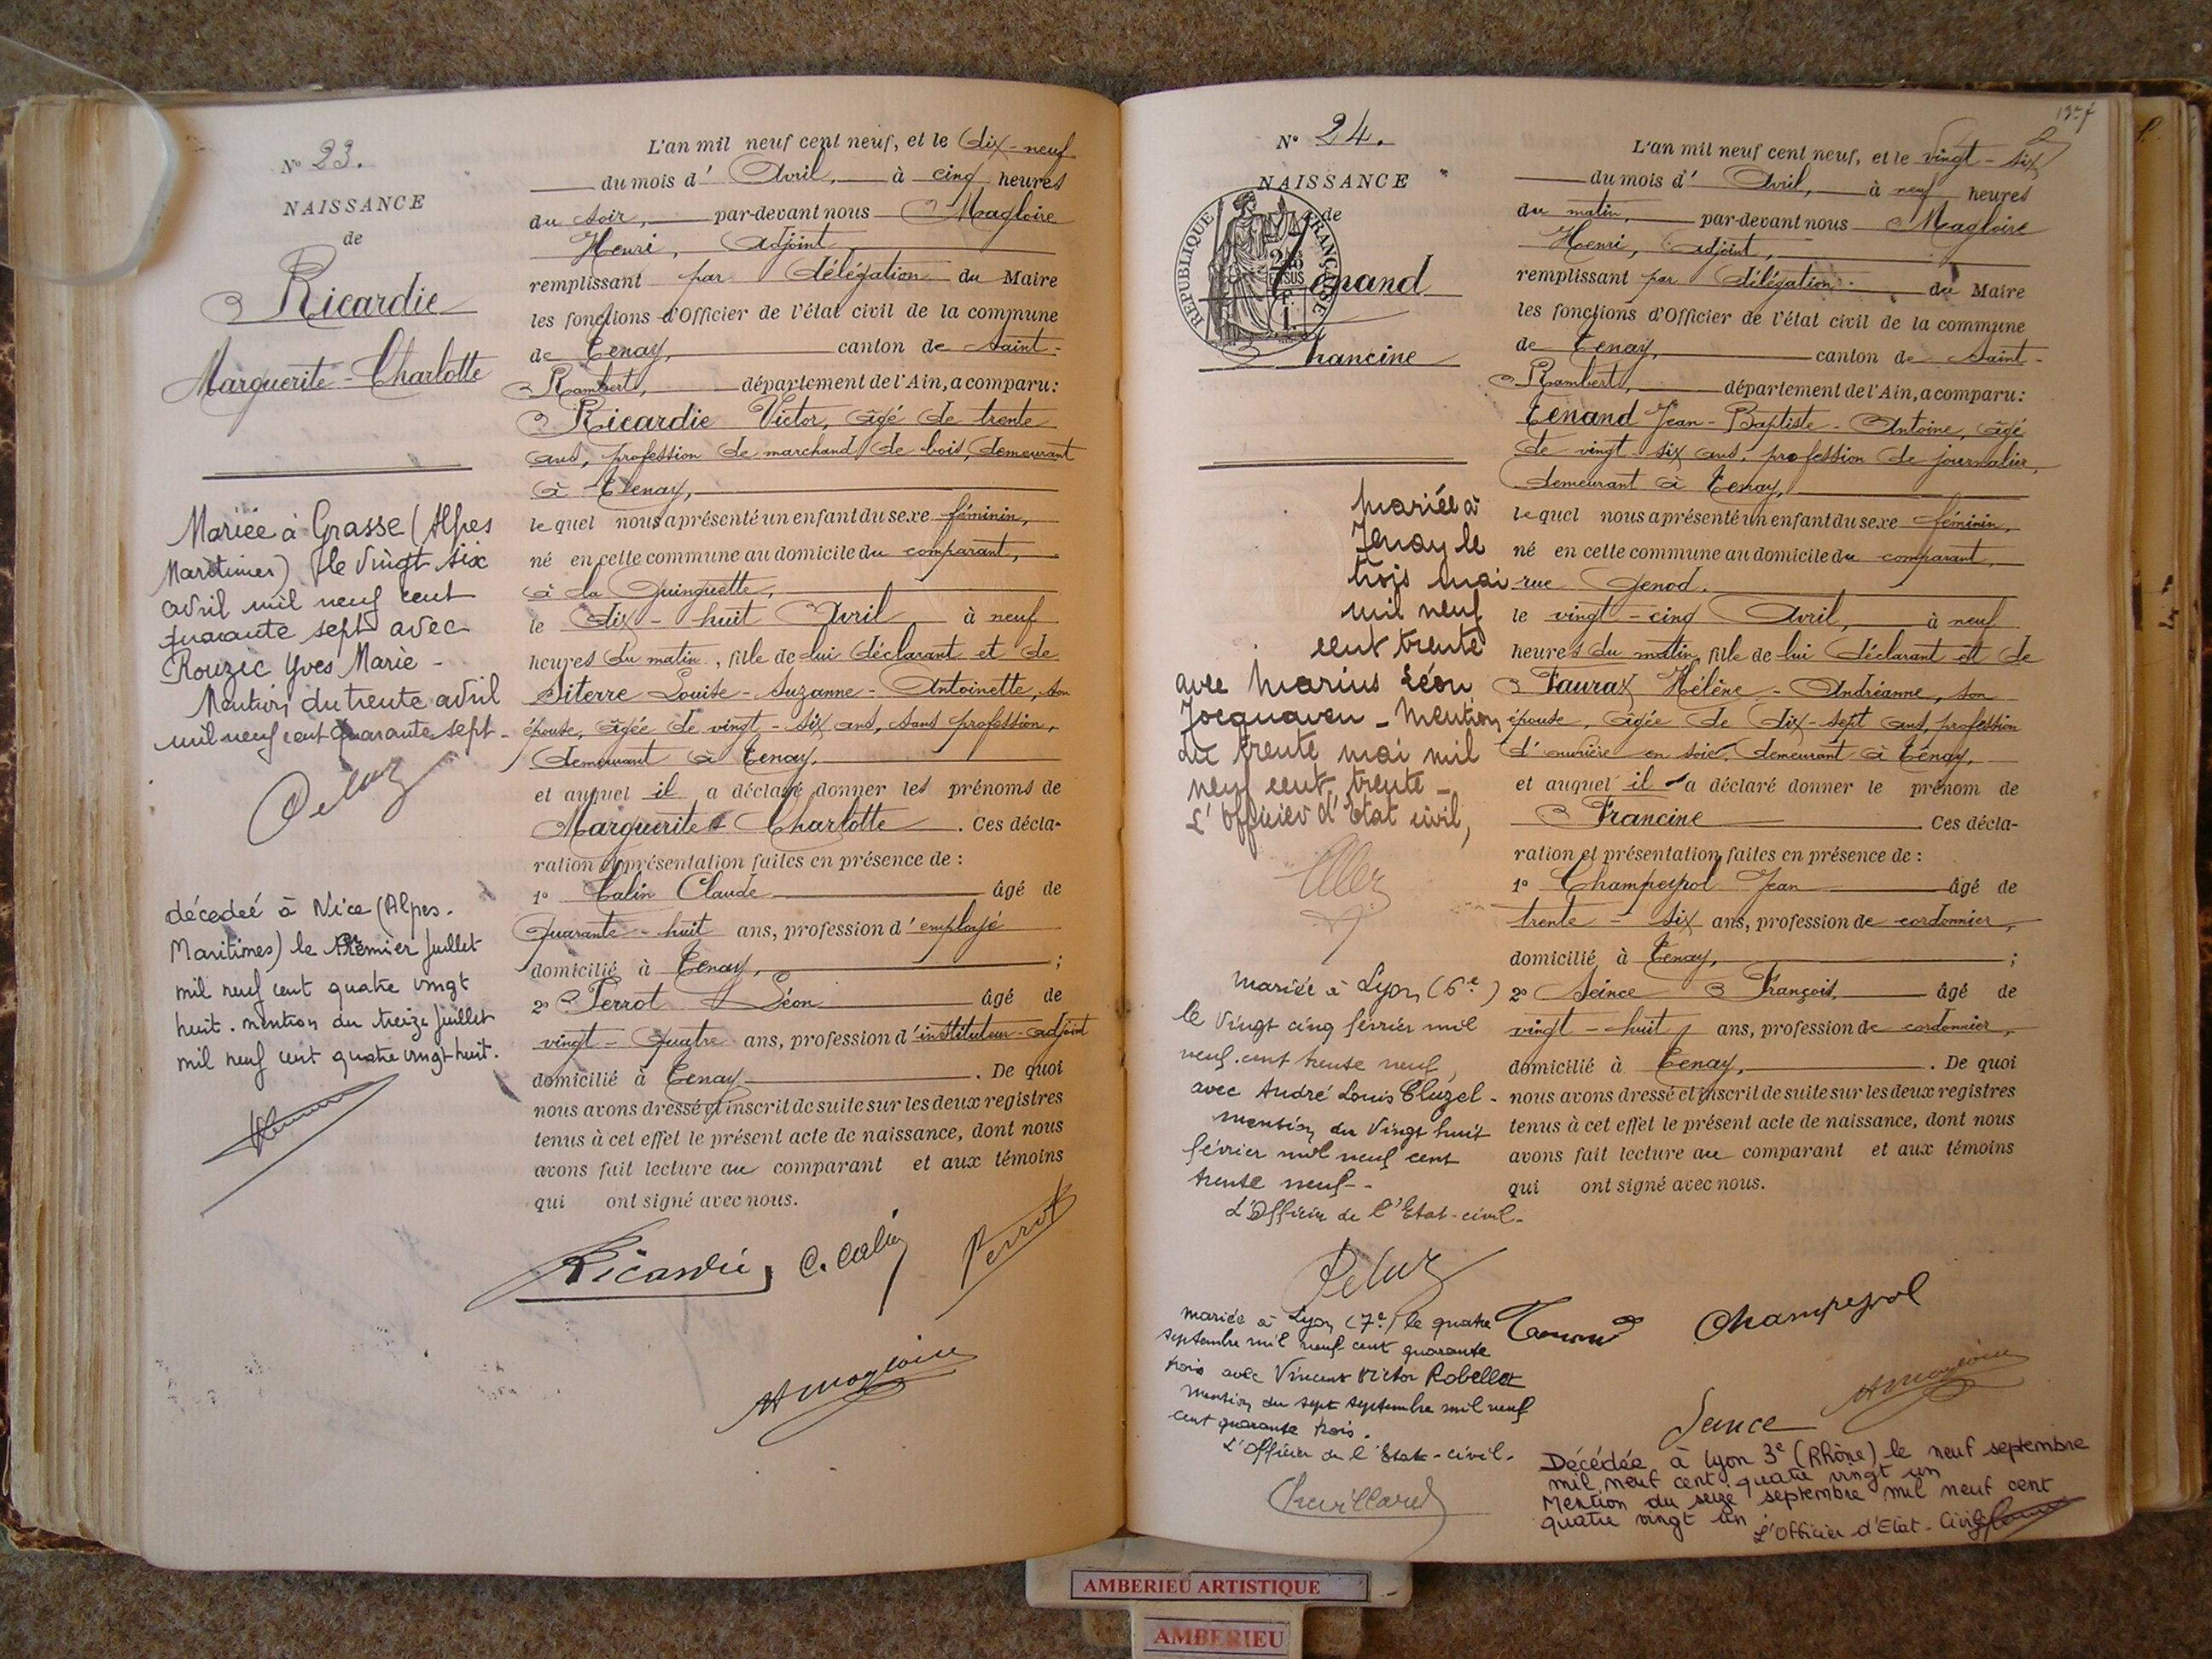 N° 23.
NAISSANCE
de
Ricardie
Marguerite-Charlotte
Mariée à Grasse (Alpes
Maritimes) le vingt six
avril mil neuf cent
quarante sept avec
Rouzic Yves Marie -
Mention du trente avril
mil neuf cent quarante sept -
décédée à Nice (Alpes-
Maritimes) le Premier Juillet
mil neuf cent quatre vingt
huit. mention du treize Juillet
mil neuf cent quatre vingt huit.
L'an mil neuf cent neuf, et le dix-neuf
du mois d'Avril, à cinq heures
du soir, par-devant nous Magloire
Henri, Adjoint,
remplissant par délégation du Maire
les fonctions d'Officier de l'état civil de la commune
de Tenay, canton de Saint-
Rambert, département de l'Ain, a comparu:
Ricardie Victor, âgé de trente
ans, profession de marchand de bois, demeurant
à Tenay,
lequel nous a présenté un enfant du sexe féminin,
né en cette commune au domicile du comparant,
à la Guinguette,
le dix-huit Avril à neuf
heures du matin, fille de lui déclarant et de
Siterre Louise-Suzanne-Antoinette, son
épouse, âgée de vingt-six ans, sans profession,
demeurant à Tenay,
et auquel il a déclaré donner les prénoms de
Marguerite Charlotte. Ces décla-
ration et présentation faites en présence de :
1° Calin Claude âgé de
quarante-huit ans, profession d'employé
domicilié à Tenay, ;
2° Perrot Léon âgé de
vingt-quatre ans, profession d'instituteur-adjoint
domicilié à Tenay. De quoi
nous avons dressé et inscrit de suite sur les deux registres
tenus à cet effet le présent acte de naissance, dont nous
avons fait lecture au comparant et aux témoins
qui ont signé avec nous.
Ricardie C. Calin Perrot
H Magloire
N° 24.
NAISSANCE
de
RÉPUBLIQUE FRANÇAISE
Tenand
Francine
mariée à
Tenay le
trois mai
mil neuf
cent trente
avec Marius Léon
Jocquaven - Mention
du trente mai mil
neuf cent trente -
L'Officier d'Etat civil,
Mariée à Lyon (6e)
le vingt cinq février mil
neuf cent trente neuf,
avec André Louis Cluzel -
mention du vingt huit
février mil neuf cent
trente neuf -
L'Officier de l'Etat-civil.
mariée à Lyon (7e) le quatre
septembre mil neuf cent quarante
trois avec Vincent Victor Robellet
mention du sept septembre mil neuf
cent quarante trois.
L'Officier de l'Etat-civil.
Chevillard
L'an mil neuf cent neuf, et le vingt-six
du mois d'Avril, à neuf heures
du matin, par-devant nous Magloire
Henri, adjoint,
remplissant par délégation du Maire
les fonctions d'Officier de l'état civil de la commune
de Tenay, canton de Saint-
Rambert, département de l'Ain, a comparu:
Tenand Jean-Baptiste-Antoine, âgé
de vingt-six ans, profession de journalier,
demeurant à Tenay,
lequel nous a présenté un enfant du sexe féminin,
né en cette commune au domicile du comparant,
rue Genod,
le vingt-cinq Avril, à neuf
heures du matin, fille de lui déclarant et de
Faurax Hélène-Andréanne, son
épouse, âgée de dix-sept ans, profession
d'ouvrière en soie, demeurant à Tenay,
et auquel il a déclaré donner le prénom de
Francine. Ces décla-
ration et présentation faites en présence de :
1° Champeyrol Jean âgé de
trente-six ans, profession de cordonnier,
domicilié à Tenay, ;
2° Seince François, âgé de
vingt-huit ans, profession de cordonnier,
domicilié à Tenay, . De quoi
nous avons dressé et inscrit de suite sur les deux registres
tenus à cet effet le présent acte de naissance, dont nous
avons fait lecture au comparant et aux témoins
qui ont signé avec nous.
Tenand Champeyrol
Seince H Magloire
Décédée à Lyon 3e (Rhône) le neuf septembre
mil neuf cent quatre vingt un
Mention du seize septembre mil neuf cent
quatre vingt un L'Officier d'Etat-Civil
AMBERIEU ARTISTIQUE
AMBERIEU